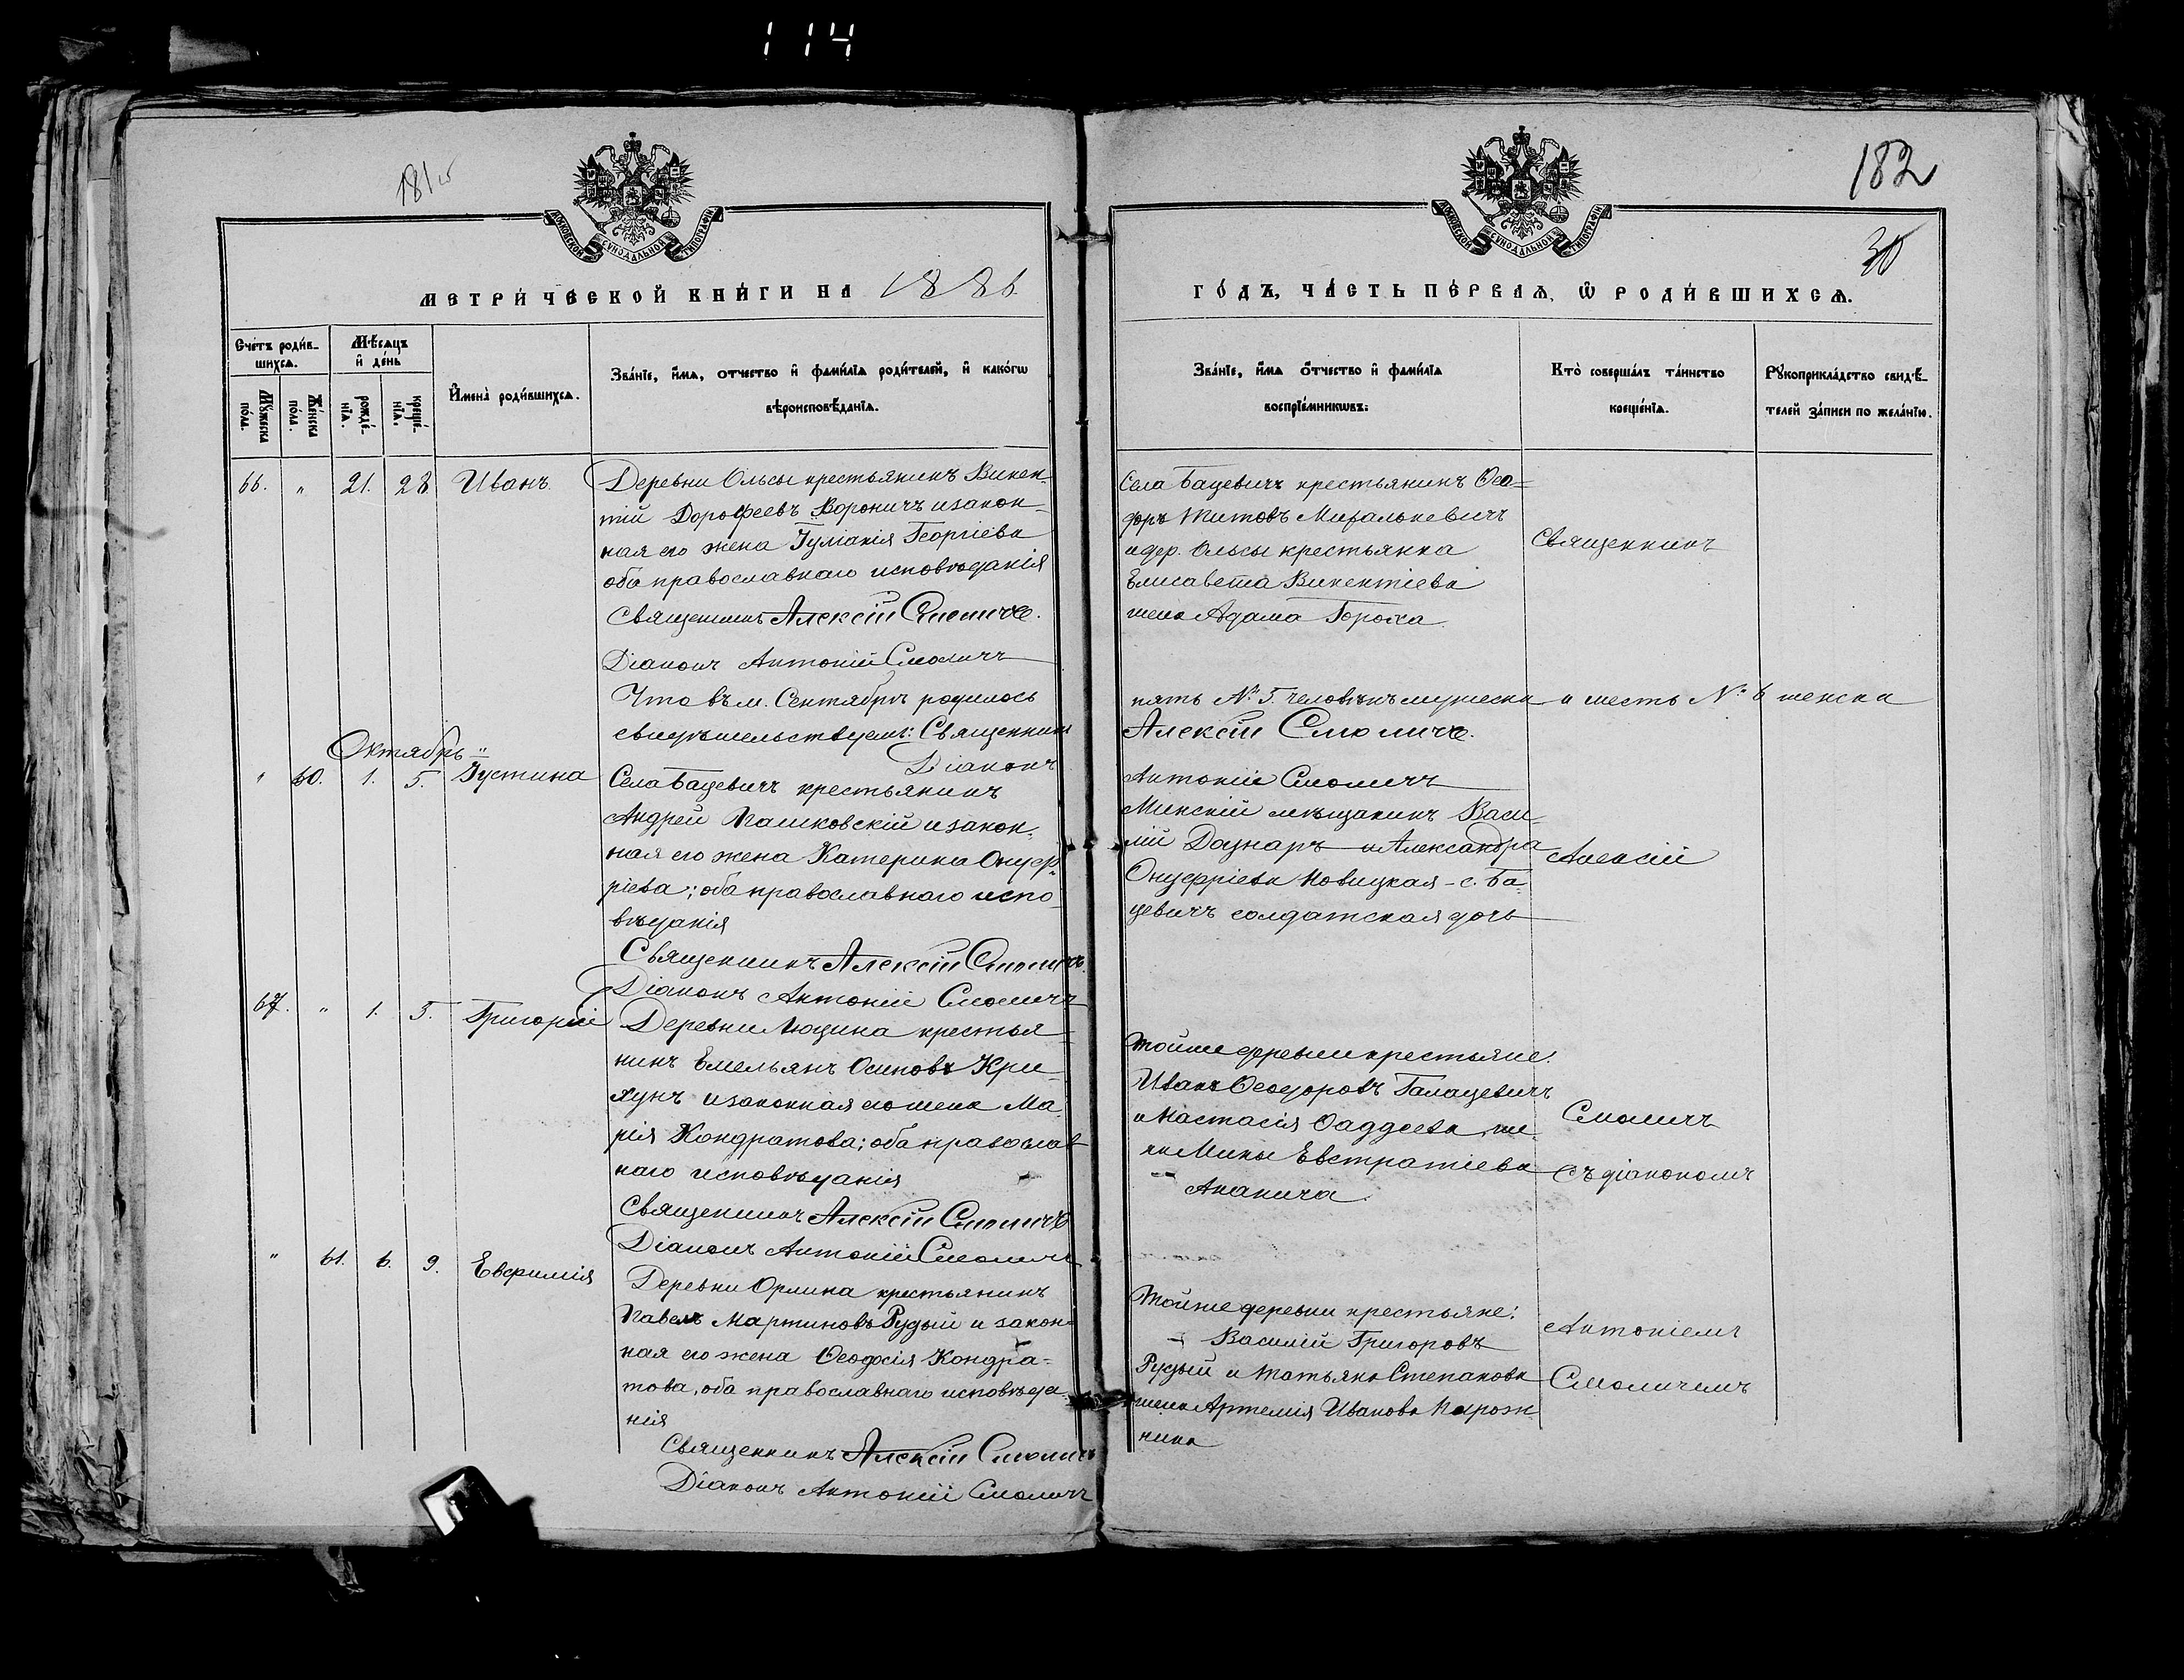 114
181 об
182
30
МОСКОВСКОЙ СѴНОДАЛЬНОЙ ТИПОГРАФІИ
МОСКОВСКОЙ СѴНОДАЛЬНОЙ ТИПОГРАФІИ
МЕТРИ́ЧЕСКОЙ КНИ́ГИ НА 1886
ГО́ДЪ, ЧА́СТЬ ПЕ́РВАѦ, Ѡ РОДИ́ВШИХСѦ.
Сче́тъ роди́в-
шихсѧ.
Мꙋжеска пола.
Же́нска по́ла.
Мѣ́сѧцъ
и҆ де́нь
рожде́-
нїѧ.
креще́-
нїѧ.
И҆мена̀ роди́вшихсѧ.
Зва́нїе, и҆́мѧ, ѻтчество и҆ фами́лїѧ роди́телей, и҆ како́гѡ
вѣроисповѣ́данїѧ.
Зва́нїе, и҆́мѧ ѻтчество и҆ фами́лїѧ
воспрїе́мникѡвъ:
Кто̀ соверша́лъ та́инство
креще́нїѧ.
Рꙋкоприкла́дство свидѣ́-
телей за́писи по жела́нїю.
66. " 21. 28. Иванъ.
Деревни Ольсы крестьянинъ Викен-
тій Дорофеевъ Вороничъ и закон-
ная его жена Іуліанія Георгіева
оба православнаго исповѣданія
Священникъ Алексій Смоличъ.
Діаконъ Антоній Смоличъ
Села Бацевичъ крестьянинъ Ѳео-
доръ Титовъ Михалькевичъ
и дер. Ольсы крестьянка
Елисавета Викентіева
жена Адама Гороха
Священникъ
Что въ м. Сентябрѣ родилось
пять № 5. человѣкъ мужеска и шесть № 6 женска
свидѣтельствуемъ: Священникъ
Алексій Смоличъ.
Діаконъ
Антоній Смоличъ
Октябрь
" 60. 1. 5. Іустина
Села Бацевичъ крестьянинъ
Андрей Пашковскій и закон-
ная его жена Катерина Онуф-
ріева; оба православнаго испо-
вѣданія
Священникъ Алексій Смоличъ.
Діаконъ Антоній Смоличъ
Минскій мѣщанинъ Васи-
лій Доцнаръ и Александра
Онуфріева Новицкая - с. Ба-
цевичъ солдатская дочь
Алексій
67. " 1. 5. Григорій
Деревни Люцина крестья-
нинъ Емельянъ Осиповъ Кри-
хунъ и законная его жена Ма-
рія Кондратова; оба православ-
наго исповѣданія
Священникъ Алексій Смоличъ
Діаконъ Антоній Смоличъ
Тойже деревни крестьяне:
Иванъ Ѳеодоровъ Галацевичъ
и Настасія Ѳаддеева же-
на Мины Евстратіева
Ананича.
Смоличъ
съ діакономъ
" 61. 6. 9. Евфимія
Деревни Орлина крестьянинъ
Павелъ Мартиновъ Рудый и закон-
ная его жена Ѳеодосія Кондра-
това, оба православнаго исповѣда-
нія
Священникъ Алексій Смоличъ
Діаконъ Антоній Смоличъ
Тойже деревни крестьяне:
Василій Григоровъ
Рудый и Татьяна Степанова
жена Артемія Иванова
Антоніемъ
Смоличемъ